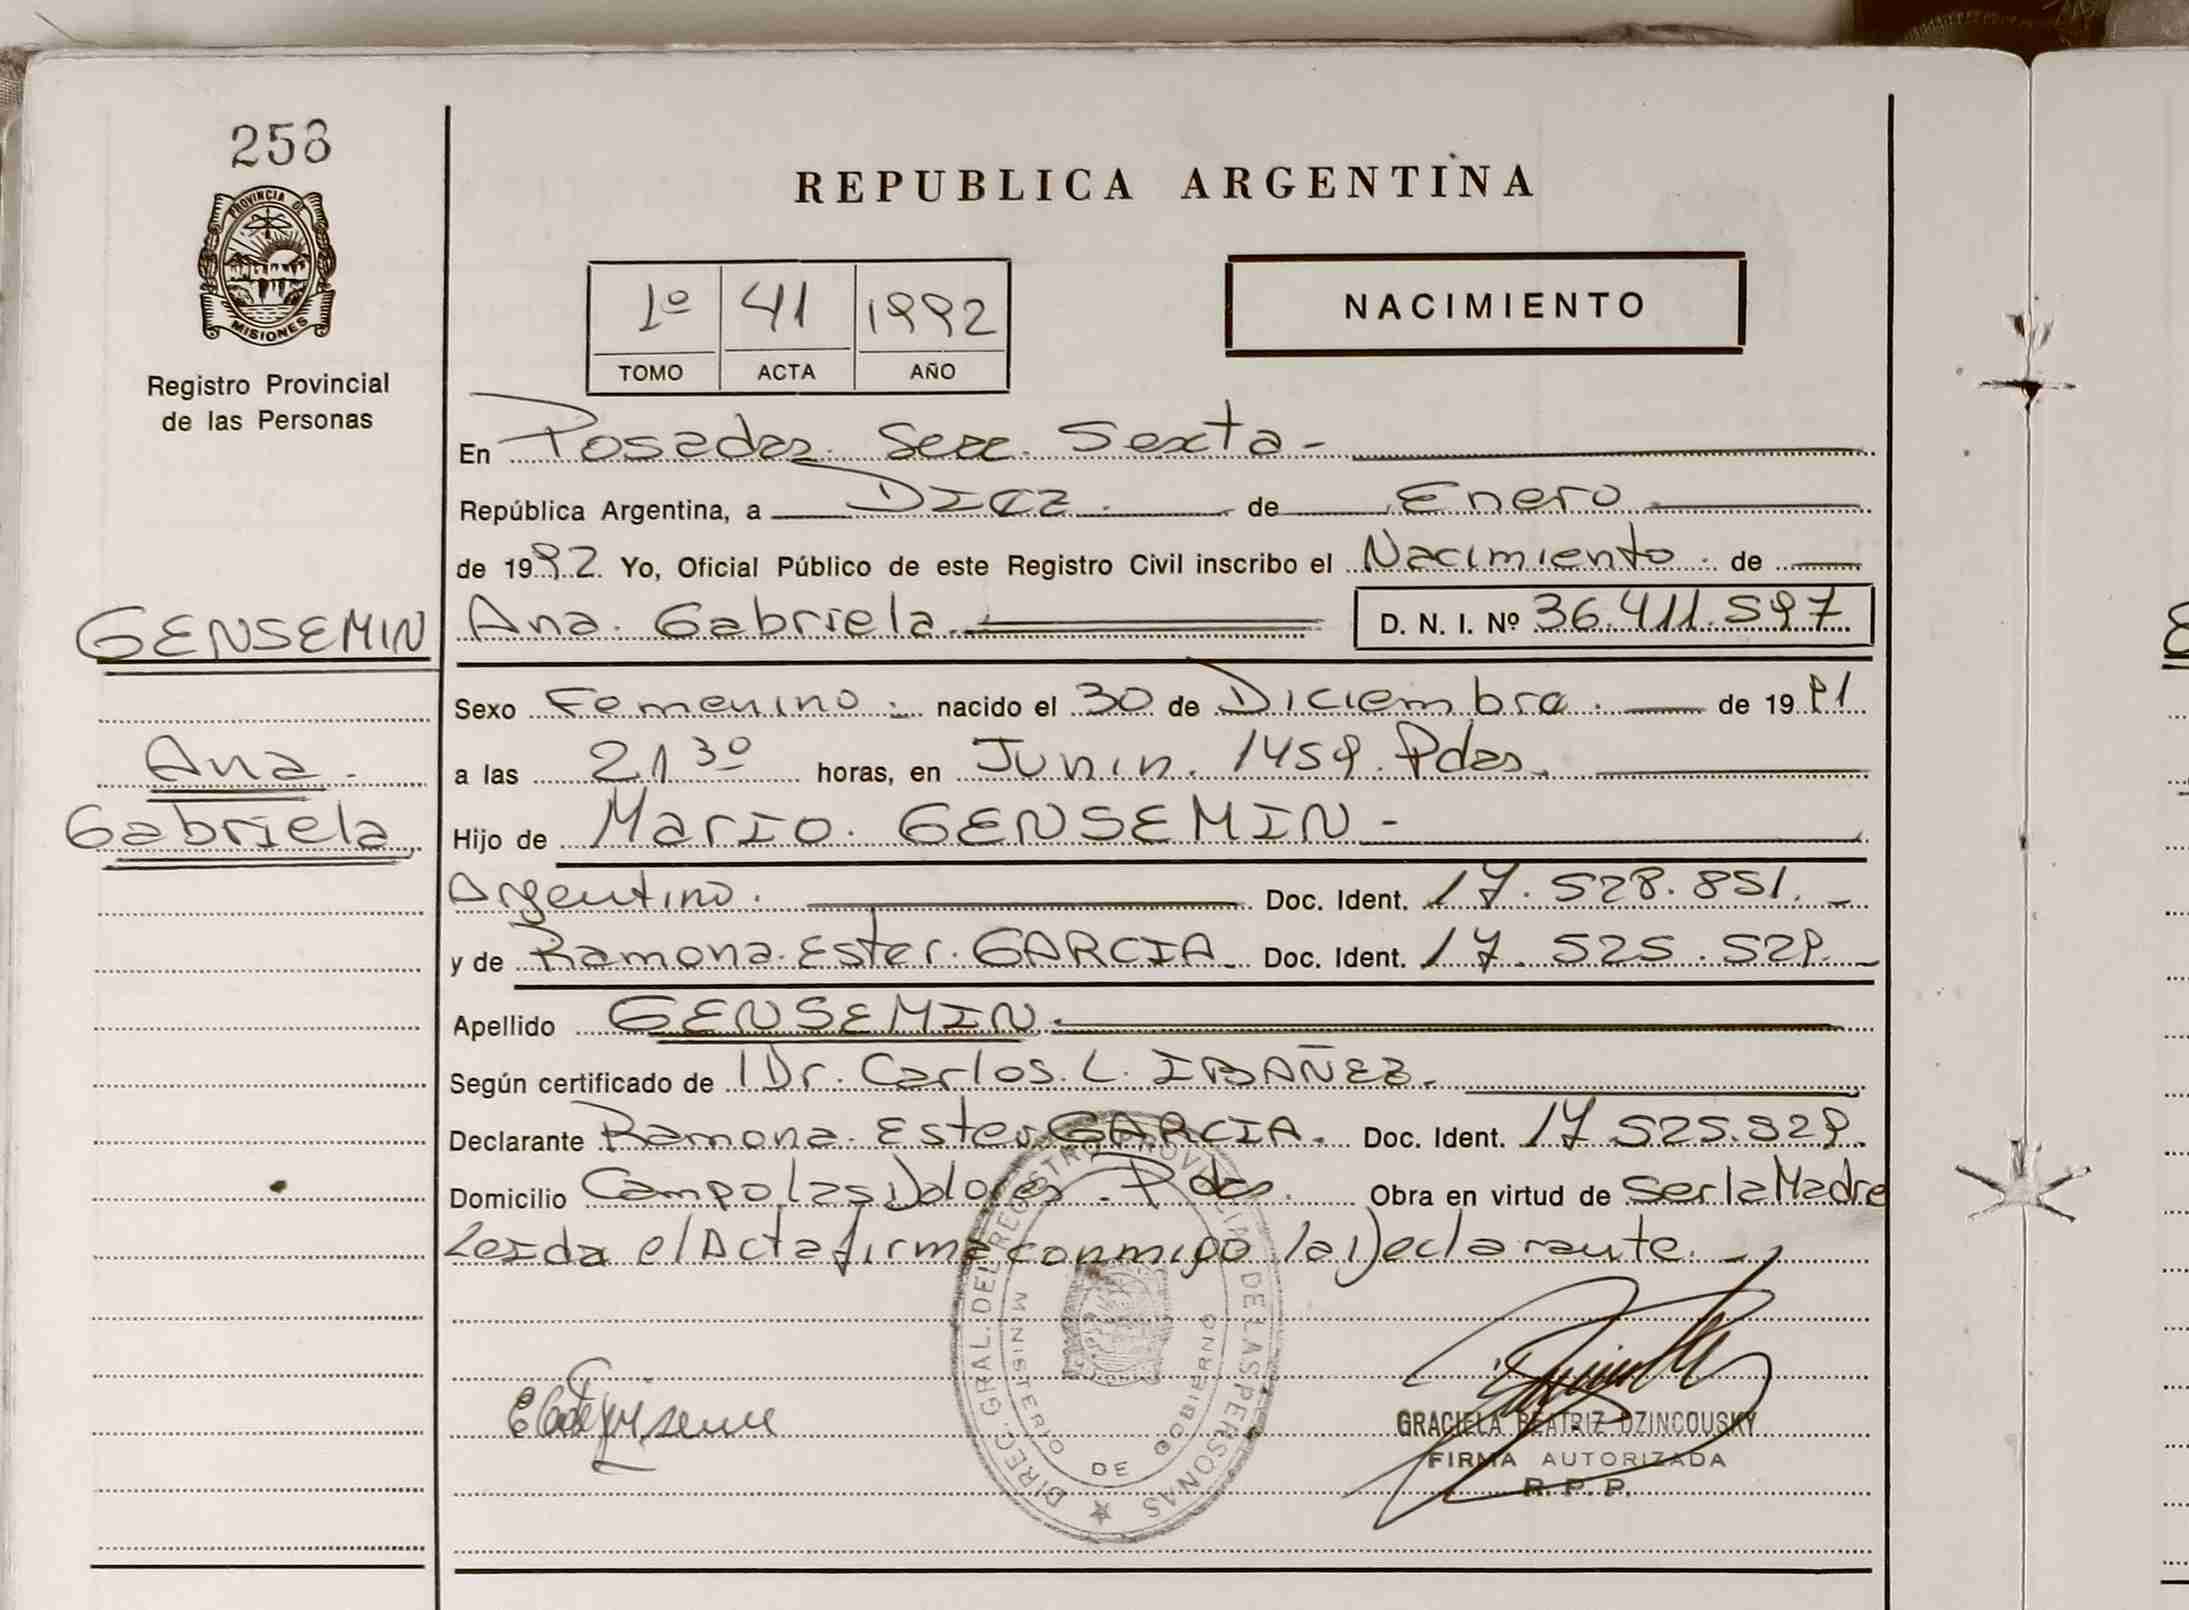 258
PROVINCIA DE
MISIONES
Registro Provincial
de las Personas
REPUBLICA ARGENTINA
1º 41 1992
TOMO ACTA AÑO
NACIMIENTO
En Posadas. Secc. Sexta-
República Argentina, a Diez. de Enero
de 1992. Yo, Oficial Público de este Registro Civil inscribo el Nacimiento. de
GENSEMIN
Ana. Gabriela. D. N. I. Nº 36.411.597
Sexo Femenino. nacido el 30 de Diciembre. de 1991
Ana.
a las 21 30 horas, en Junin. 1459. Pdas.
Gabriela
Hijo de Mario. GENSEMIN-
Argentino. Doc. Ident. 17.528.851.
y de Ramona. Ester. GARCIA Doc. Ident. 17.525.529.
Apellido GENSEMIN.
Según certificado de Dr. Carlos. L. IBAÑEZ.
Declarante Ramona. Ester GARCIA. Doc. Ident. 17.525.529.
Domicilio Campo las Dolores. Pdas. Obra en virtud de ser la Madre
Leida el Acta firma conmigo la Declarante.
DIREC. GRAL. DEL REGISTRO PROVINCIAL DE LAS PERSONAS
MINISTERIO DE GOBIERNO
GRACIELA BEATRIZ DZINCOUSKY
FIRMA AUTORIZADA
R. P. P.